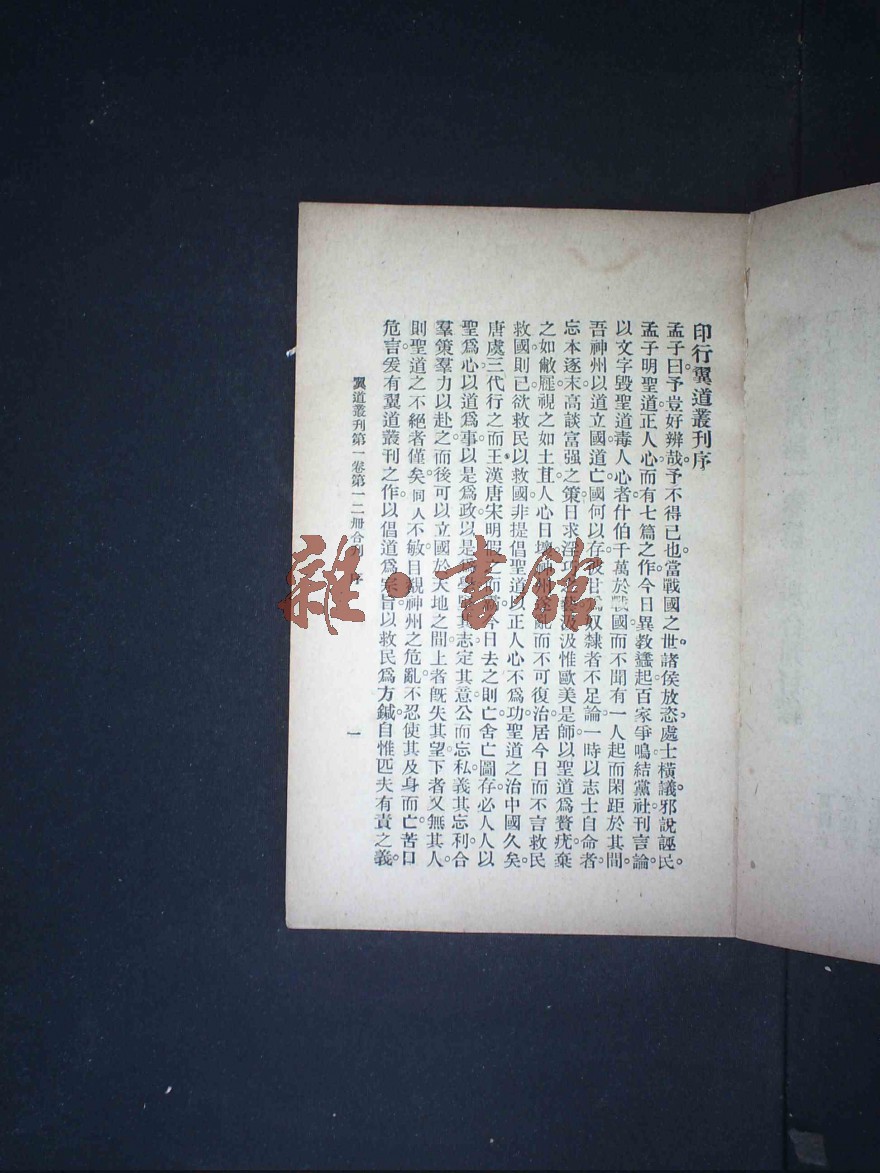 印行翼道叢刊序
孟子曰予豈好辨哉予不得已也當戰國之世諸侯放恣處士橫議邪說誣民
孟子明聖道正人心而有七篇之作今日異教蠭起百家爭鳴結黨社刊言論
以文字毀聖道毒人心者什伯千萬於戰國而不聞有一人起而閑距於其間
吾神州以道立國道亡國何以存彼甘爲奴隸者不足論一時以志士自命者
忘本逐末高談富强之策日求淫巧之汲汲惟歐美是師以聖道爲贅疣棄
之如敝屣視之如土苴人心日壞神州遂亂而不可復治居今日而不言救民
救國則已欲救民以救國非提倡聖道以正人心不爲功聖道之治中國久矣
唐虞三代行之而王漢唐宋明假之而今日去之則亡舍亡圖存必人人以
聖爲心以道爲事以是爲政以是其志定其意公而忘私義其忘利合
羣策羣力以赴之而後可以立國於天地之間上者旣失其望下者又無其人
則聖道之不絕者僅矣同人不敏目覩神州之危亂不忍使其及身而亡苦口
危言爰有翼道叢刊之作以倡道爲宗旨以救民爲方鍼自惟匹夫有責之義
翼道叢刊第一卷第一二册合刊 序
一
雜·書館